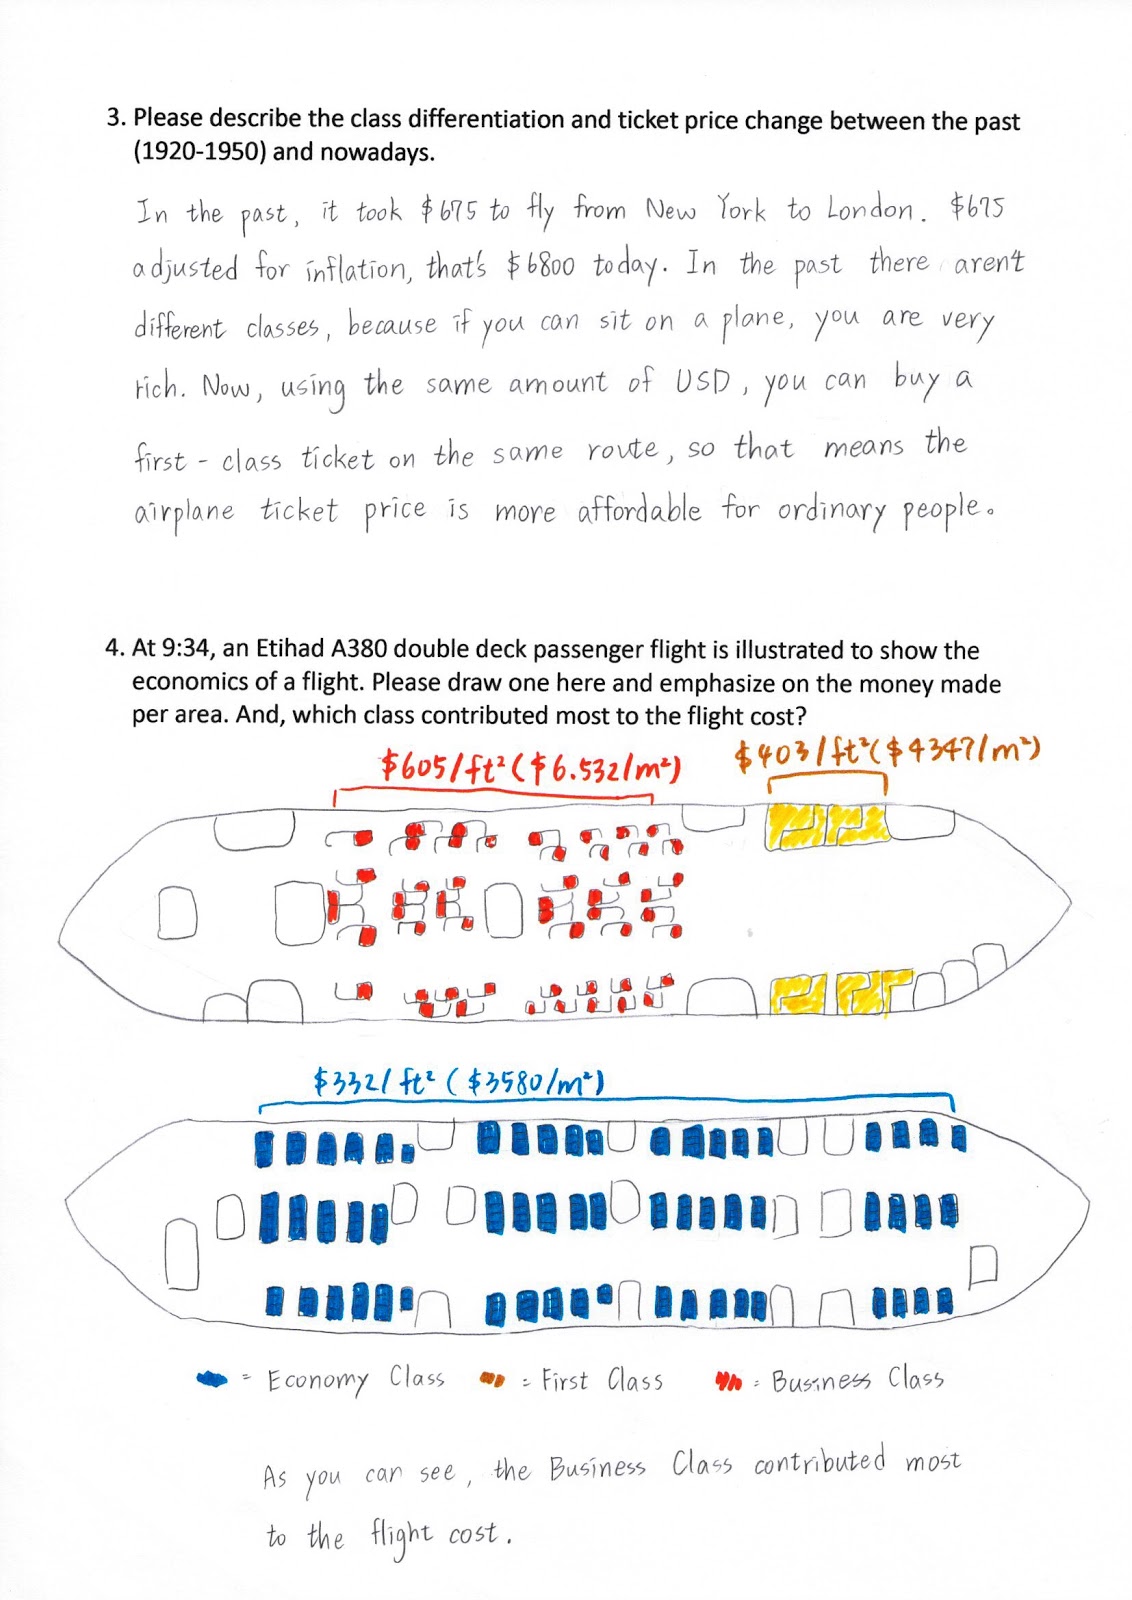 3. Please describe the class differentiation and ticket price change between the past
(1920-1950) and nowadays.
In the past, it took $675 to fly from New York to London. $675
adjusted for inflation, that's $6800 today. In the past there aren't
different classes, because if you can sit on a plane, you are very
rich. Now, using the same amount of USD, you can buy a
first-class ticket on the same route, so that means the
airplane ticket price is more affordable for ordinary people.
4. At 9:34, an Etihad A380 double deck passenger flight is illustrated to show the
economics of a flight. Please draw one here and emphasize on the money made
per area. And, which class contributed most to the flight cost?
$605/ft² ($6.532/m²)
$403/ft² ($4347/m²)
$332/ft² ($3580/m²)
= Economy Class = First Class = Business Class
As you can see, the Business Class contributed most
to the flight cost.